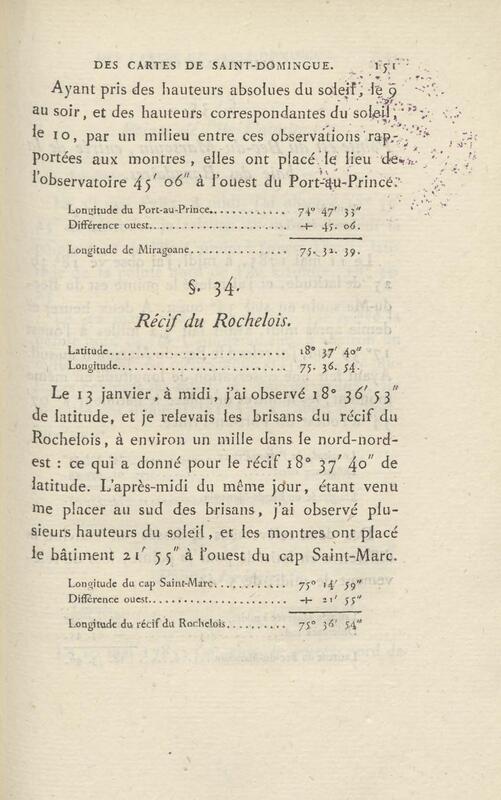 DES CARTES DE SAINT-DOMINGUE. 151
Ayant pris des hauteurs absolues du soleil, le 9
au soir, et des hauteurs correspondantes du soleil,
le 10, par un milieu entre ces observations rap-
portées aux montres, elles ont placé le lieu de
l'observatoire 45′ 06″ à l'ouest du Port-au-Prince.
Longitude du Port-au-Prince............ 74° 47′ 33″
Différence ouest........................ + 45. 06.
Longitude de Miragoane................ 75. 32. 39.
§. 34.
Récif du Rochelois.
Latitude.............................. 18° 37′ 40″
Longitude............................. 75. 36. 54.
Le 13 janvier, à midi, j'ai observé 18° 36′ 53″
de latitude, et je relevais les brisans du récif du
Rochelois, à environ un mille dans le nord-nord-
est : ce qui a donné pour le récif 18° 37′ 40″ de
latitude. L'après-midi du même jour, étant venu
me placer au sud des brisans, j'ai observé plu-
sieurs hauteurs du soleil, et les montres ont placé
le bâtiment 21′ 55″ à l'ouest du cap Saint-Marc.
Longitude du cap Saint-Marc............ 75° 14′ 59″
Différence ouest........................ + 21′ 55″
Longitude du récif du Rochelois.......... 75° 36′ 54″